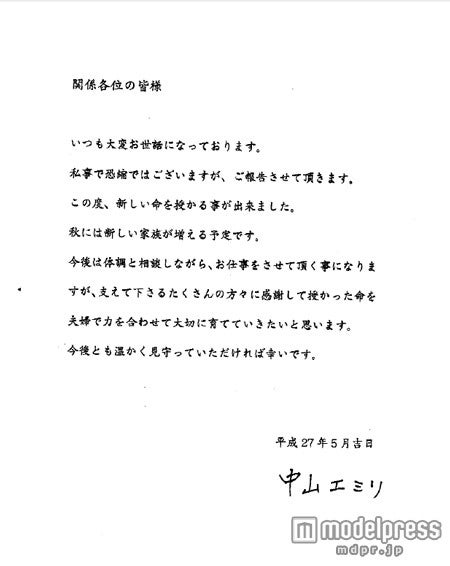 関係各位の皆様
いつも大変お世話になっております。
私事で恐縮ではございますが、ご報告させて頂きます。
この度、新しい命を授かる事が出来ました。
秋には新しい家族が増える予定です。
今後は体調と相談しながら、お仕事をさせて頂く事になりま
すが、支えて下さるたくさんの方々に感謝して授かった命を
夫婦で力を合わせて大切に育てていきたいと思います。
今後とも温かく見守っていただければ幸いです。
平成27年5月吉日
中山エミリ
modelpress
mdpr.jp